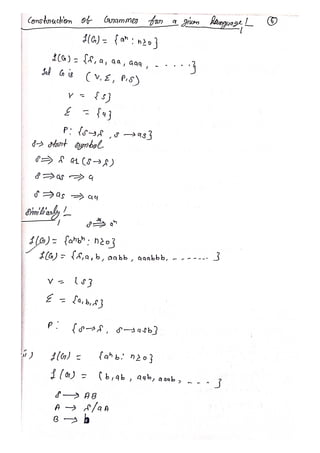 Construction of Grammer for a given language! 5
L(G) = { aⁿ : n≥0 }
L(G) = { λ, a, aa, aaa, - . . . . . }
Let G is ( V, Σ, P, S )
V = { S }
Σ = { a }
P: { S→λ , S → aS }
S→ start symbol
S ⇒ λ as (S→λ)
S ⇒ aS ⇒ a
S ⇒ aS ⇒ aa
Similarly !
S ⇒ aⁿ
L(G) = { aⁿbⁿ : n≥0 }
L(G) = { λ, a, b, aabb, aaabbb, - - - - - - . . }
V = { S }
Σ = { a, b, λ }
P : { S→λ, S→aSb }
ii) L(G) = { aⁿ b : n≥0 }
L(G) = { b, ab, aab, aaab, - - . }
S → AB
A → λ/aA
B → b